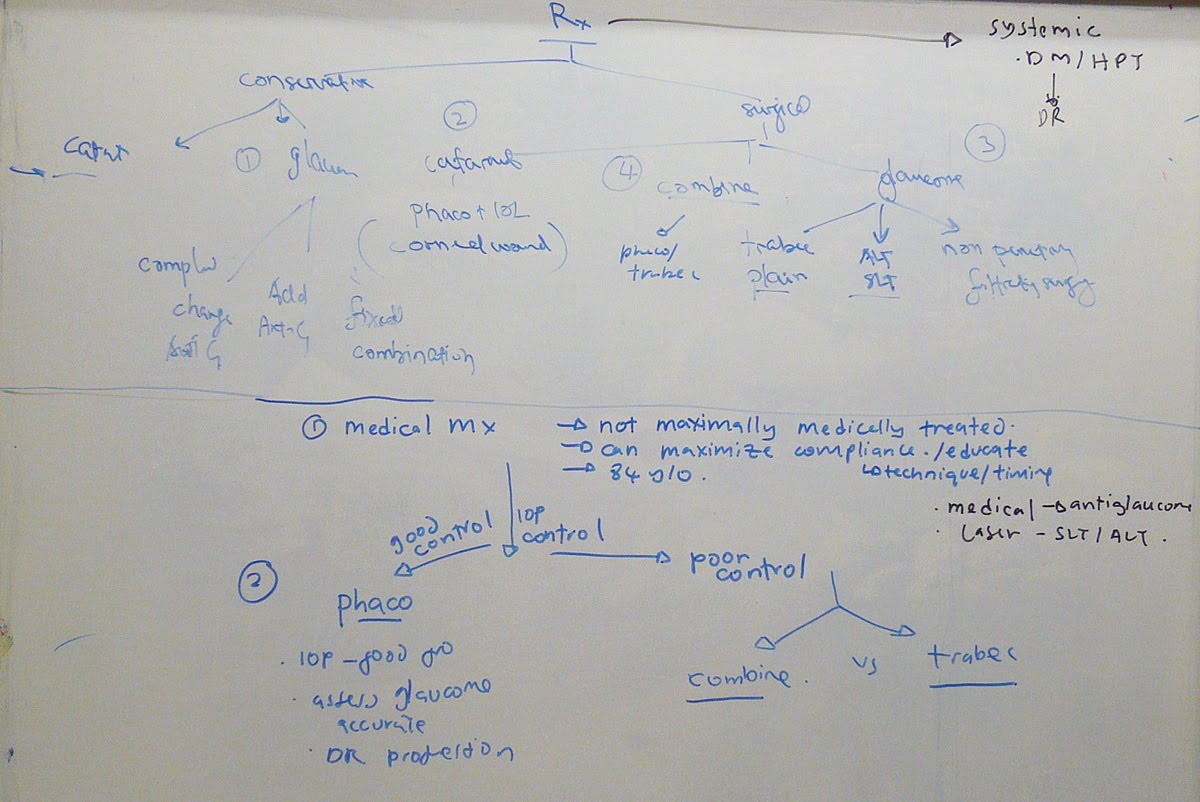 Rx
systemic
. DM / HPT
DR
conservative
surgical
catar
① glaucom
② cataract
phaco + IOL
(corneal wound)
④ combine
phaco/
trabec
③ glaucoma
trabec
plain
ALT
SLT
non penetrating
filtrating surgery
change
Anti G
Add
Ant-G
fixed
combination
① medical mx
→ not maximally medically treated.
→ can maximize compliance. /educate
↳ technique/timing
→ 84 y/o.
. medical → antiglaucoma
. Laser - SLT / ALT .
good
control
IOP
control
poor
control
②
phaco
. IOP - good
. assess glaucoma
accurate
. DR
combine .
vs
trabec